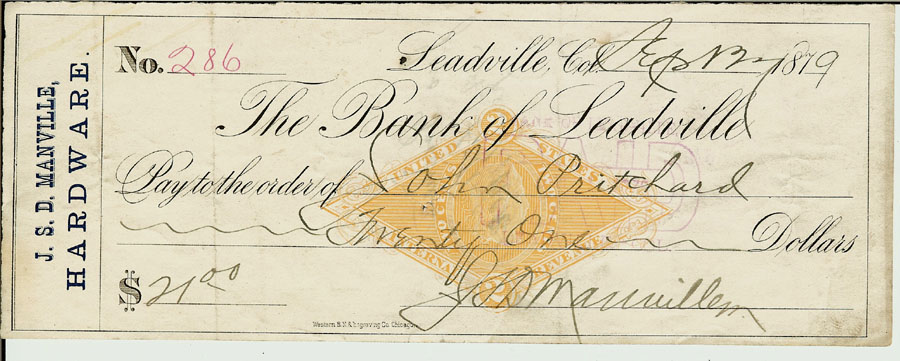 J. S. D. MANVILLE,
HARDWARE.
No. 286
Leadville, Col. Sep 1879
The Bank of Leadville
UNITED STATES
INTERNAL REVENUE
Pay to the order of John Pritchard
Twenty One Dollars
$ 21 00
J S D Manville
Western B. N. & Engraving Co. Chicago